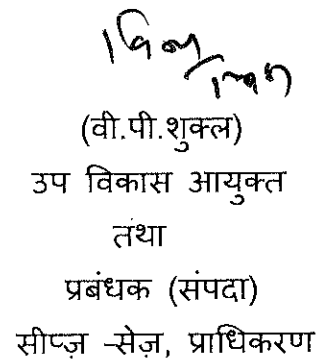 (वी.पी.शुक्ल)
उप विकास आयुक्त
तथा
प्रबंधक (संपदा)
सीप्ज़ –सेज़, प्राधिकरण